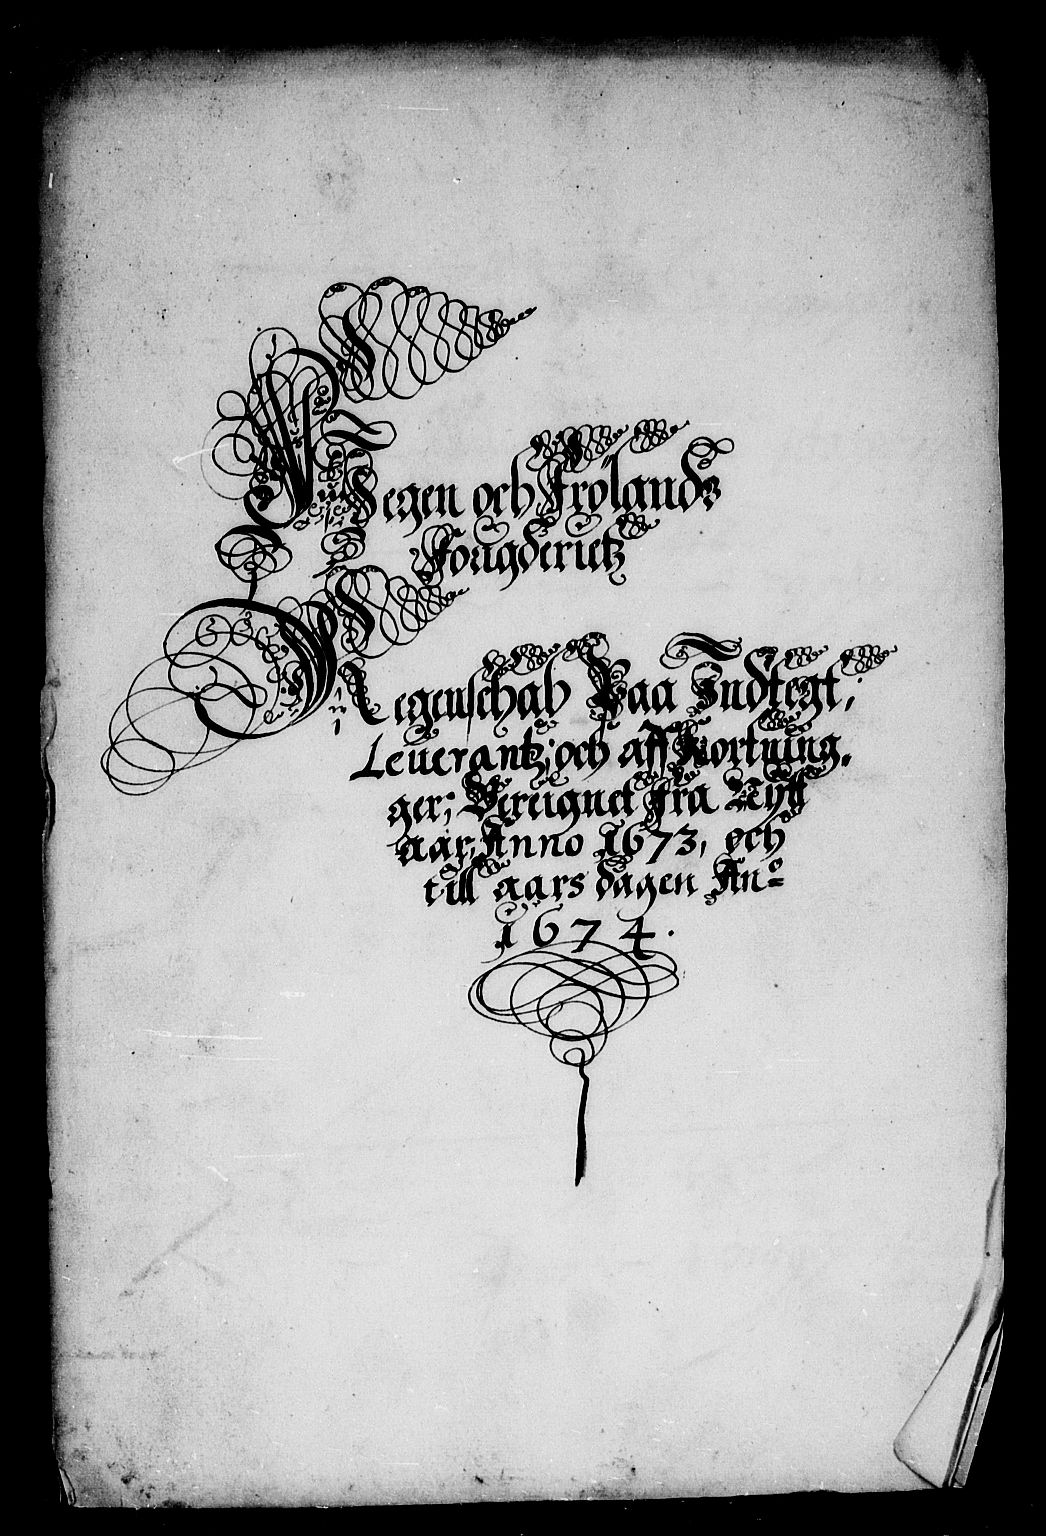 Weegen och Frölands
Fougderietz
Regenschab Paa Indtegt;
Leuerantz; och aff Kortning,
ger; Bereignet Fra Nÿtt
aar, Anno 1673, och
till aars dagen An:o
1674.